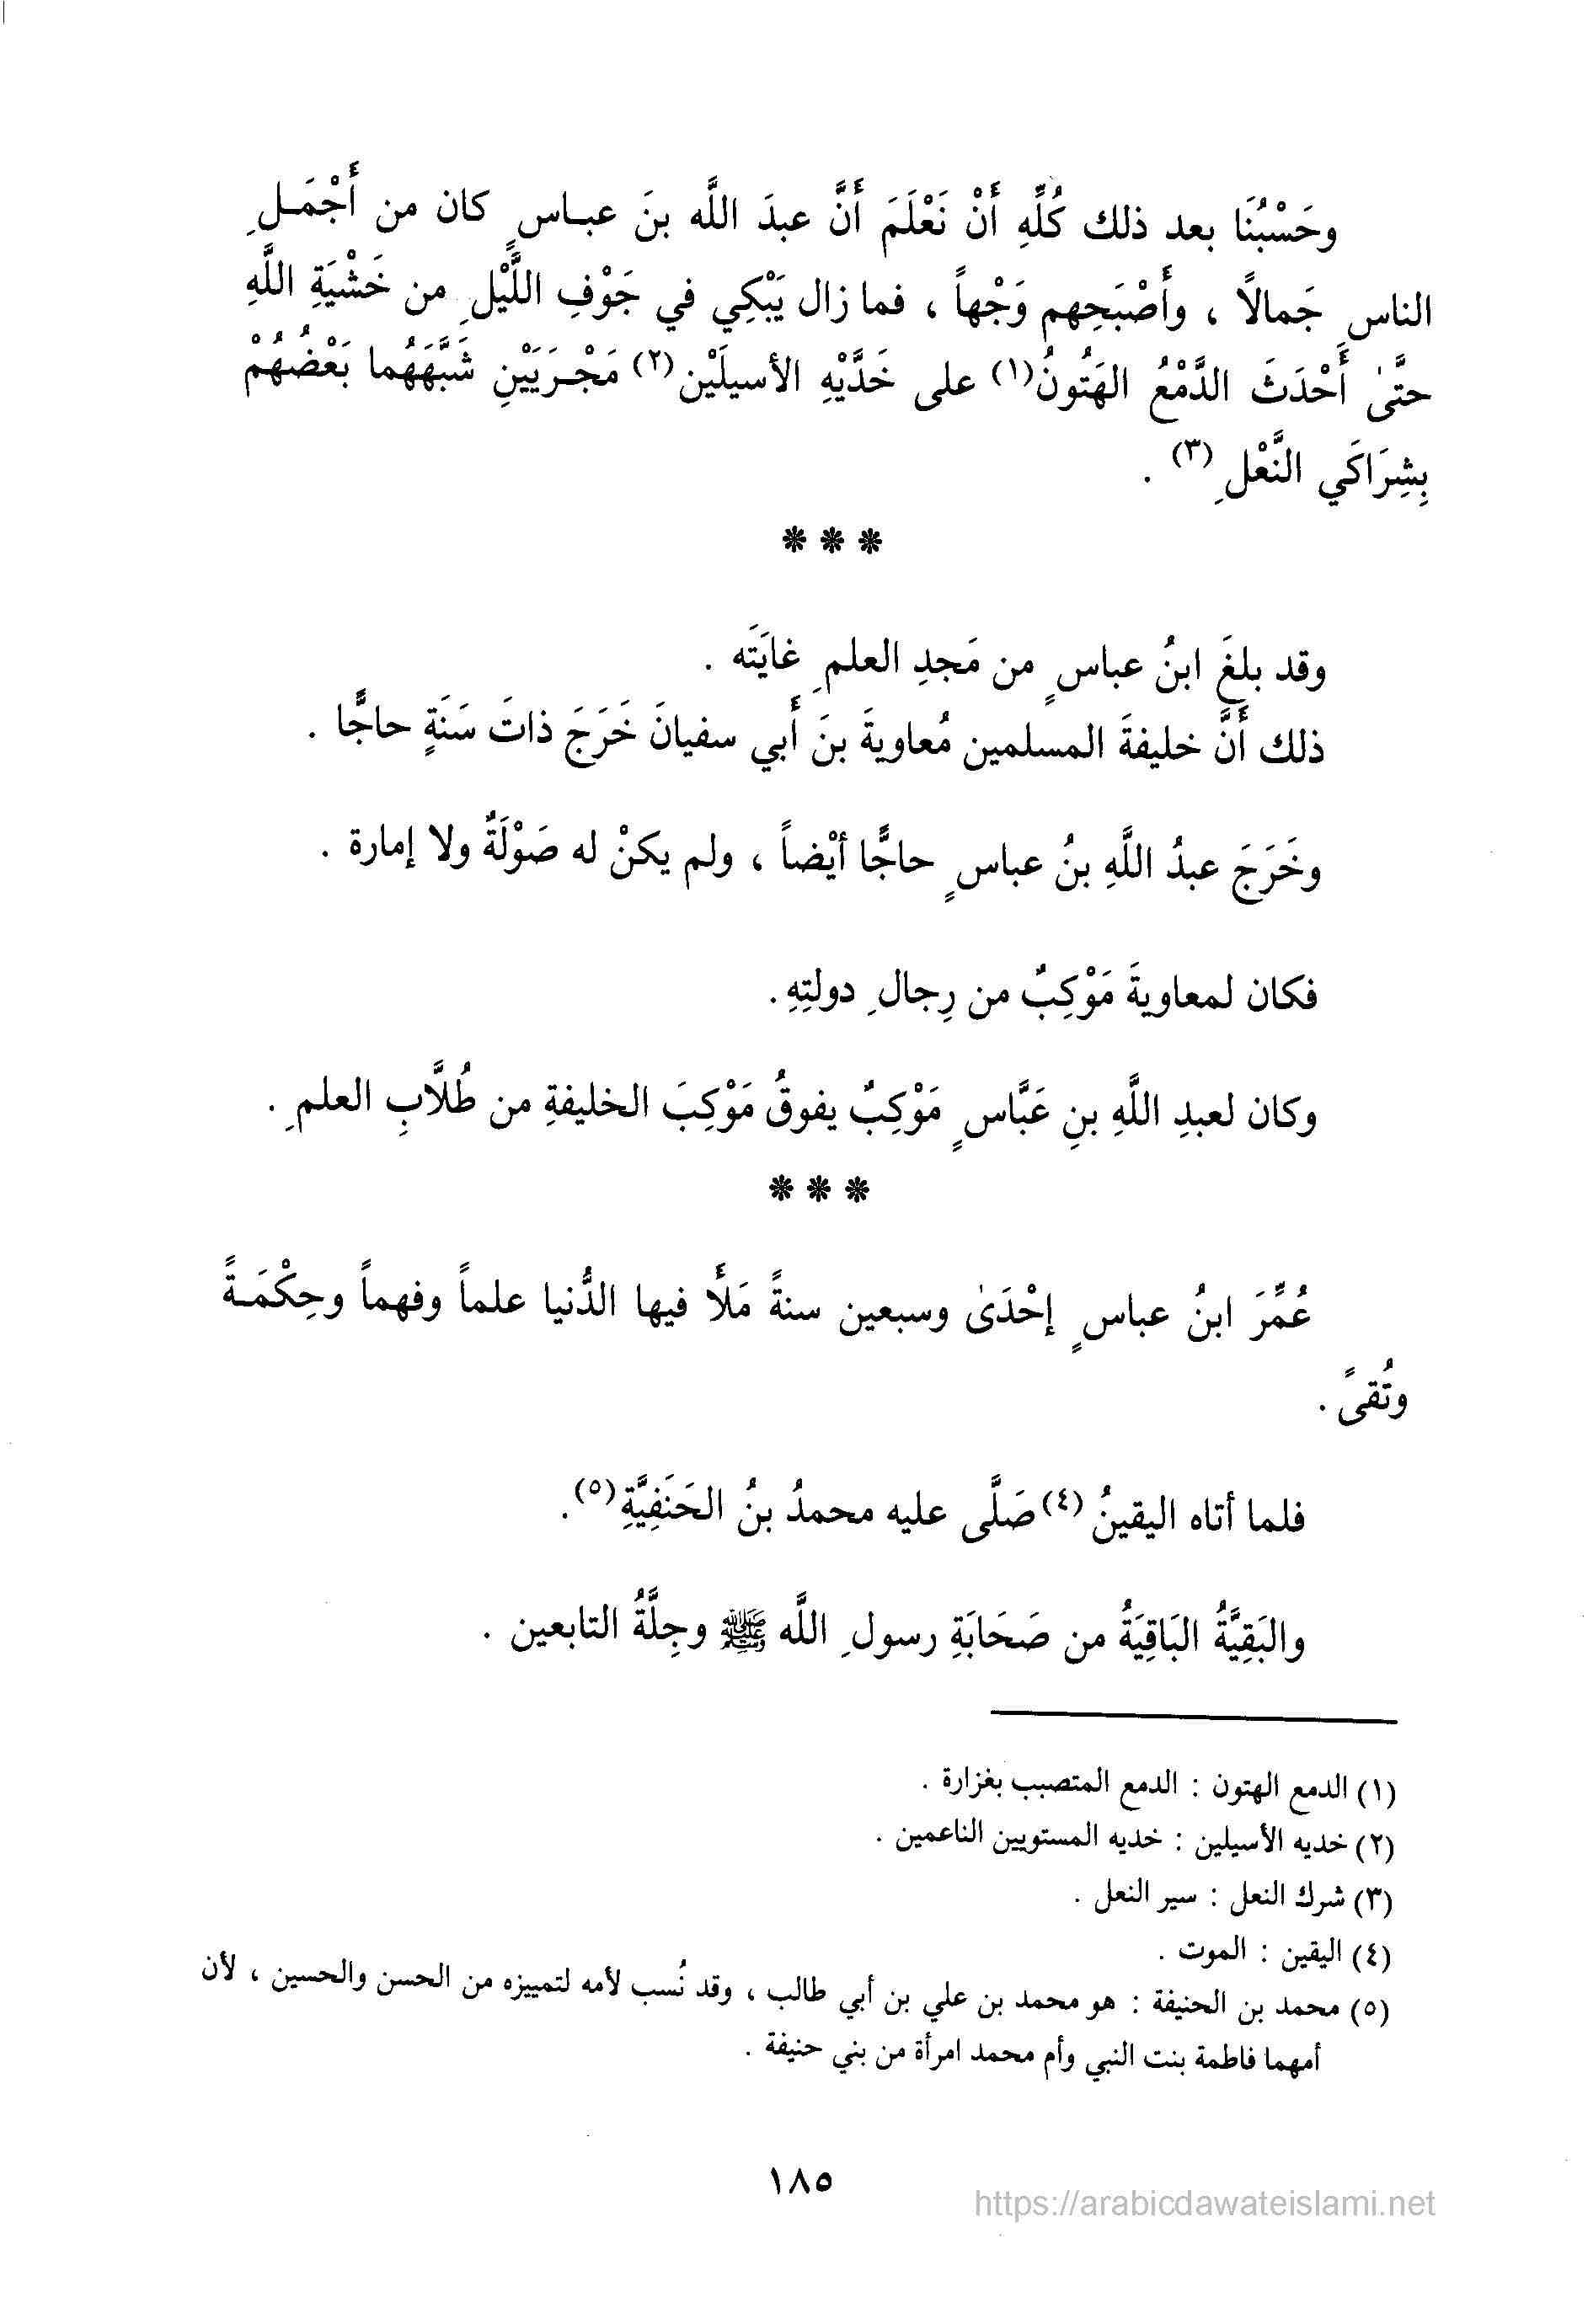 وحَسْبُنَا بعد ذلك كُلِّهِ أَنْ نَعْلَمَ أَنَّ عبدَ اللَّه بنَ عبـاسٍ كان من أَجْمَـلِ
الناسِ جَمالاً ، وأَصْبَحِهم وَجْهاً ، فما زال يَبْكِي في جَوْفِ اللَّيْلِ من خَشْيَةِ اللَّهِ
حتَّىٰ أَحْدَثَ الدَّمْعُ الهَتُونُ(١) على خَدَّيْهِ الأسيلَيْن(٢) مَجْـرَيَيْنِ شَبَّهَهُما بَعْضُهُمْ
بِشِرَاكَي النَّعْلِ(٣) .
* * *
وقد بلغَ ابنُ عباسٍ من مَجدِ العلمِ غايَتَه .
ذلك أَنَّ خليفةَ المسلمين مُعاويةَ بنَ أَبي سفيانَ خَرَجَ ذاتَ سَنَةٍ حاجًّا .
وخَرَجَ عبدُ اللَّهِ بنُ عباسٍ حاجًّا أيْضاً ، ولم يكنْ له صَوْلَةٌ ولا إمارة .
فكان لمعاويةَ مَوْكِبٌ من رِجالِ دولتِهِ .
وكان لعبدِ اللَّهِ بنِ عَبَّاسٍ مَوْكِبٌ يفوقُ مَوْكِبَ الخليفةِ من طُلَّابِ العلمِ .
* * *
عُمِّرَ ابنُ عباسٍ إحْدَىٰ وسبعين سنةً مَلَأَ فيها الدُّنيا علماً وفهماً وحِكْمَـةً
وتُقىً .
فلما أتاه اليقينُ (٤) صَلَّى عليه محمدُ بنُ الحَنَفِيَّةِ(٥) .
والبَقِيَّةُ البَاقِيَةُ من صَحَابَةِ رسولِ اللَّه ﷺ وجِلَّةُ التابعين .
(١) الدمع الهتون : الدمع المتصبب بغزارة .
(٢) خديه الأسيلين : خديه المستويين الناعمين .
(٣) شرك النعل : سير النعل .
(٤) اليقين : الموت .
(٥) محمد بن الحنيفة : هو محمد بن علي بن أبي طالب ، وقد نُسب لأمه لتمييزه من الحسن والحسين ، لأن
أمهما فاطمة بنت النبي وأم محمد امرأة من بني حنيفة .
١٨٥
https://arabicdawateislami.net